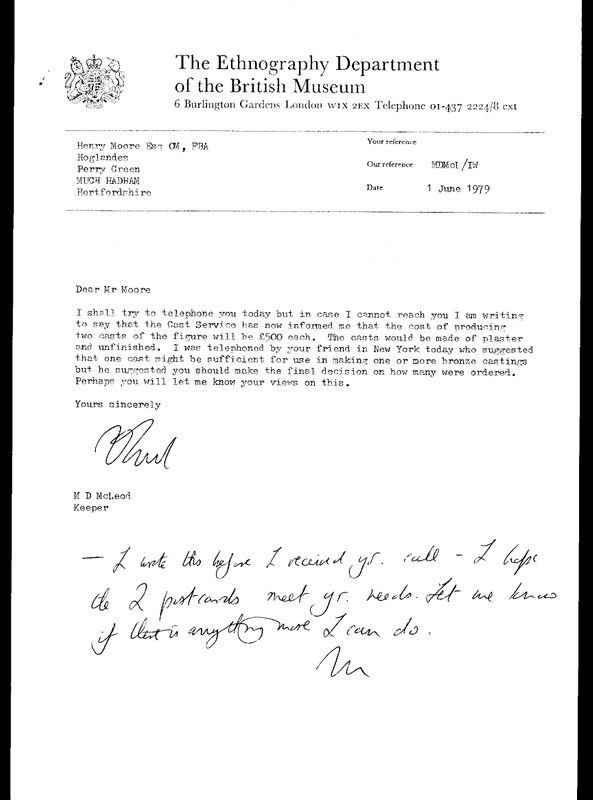 The Ethnography Department
of the British Museum
6 Burlington Gardens London W1X 2EX Telephone 01-437 2224/8 ext
Henry Moore Esq OM, FBA
Hoglandes
Perry Green
MUCH HADHAM
Hertfordshire
Your reference
Our reference MDMcL/IW
Date 1 June 1979
Dear Mr Moore
I shall try to telephone you today but in case I cannot reach you I am writing
to say that the Cast Service has now informed me that the cost of producing
two casts of the figure will be £500 each. The casts would be made of plaster
and unfinished. I was telephoned by your friend in New York today who suggested
that one cast might be sufficient for use in making one or more bronze castings
but he suggested you should make the final decision on how many were ordered.
Perhaps you will let me know your views on this.
Yours sincerely
M D McLeod
Keeper
— I wrote this before I received yr. call - I hope
the 2 postcards meet yr. needs. Let me know
if there is anything more I can do.